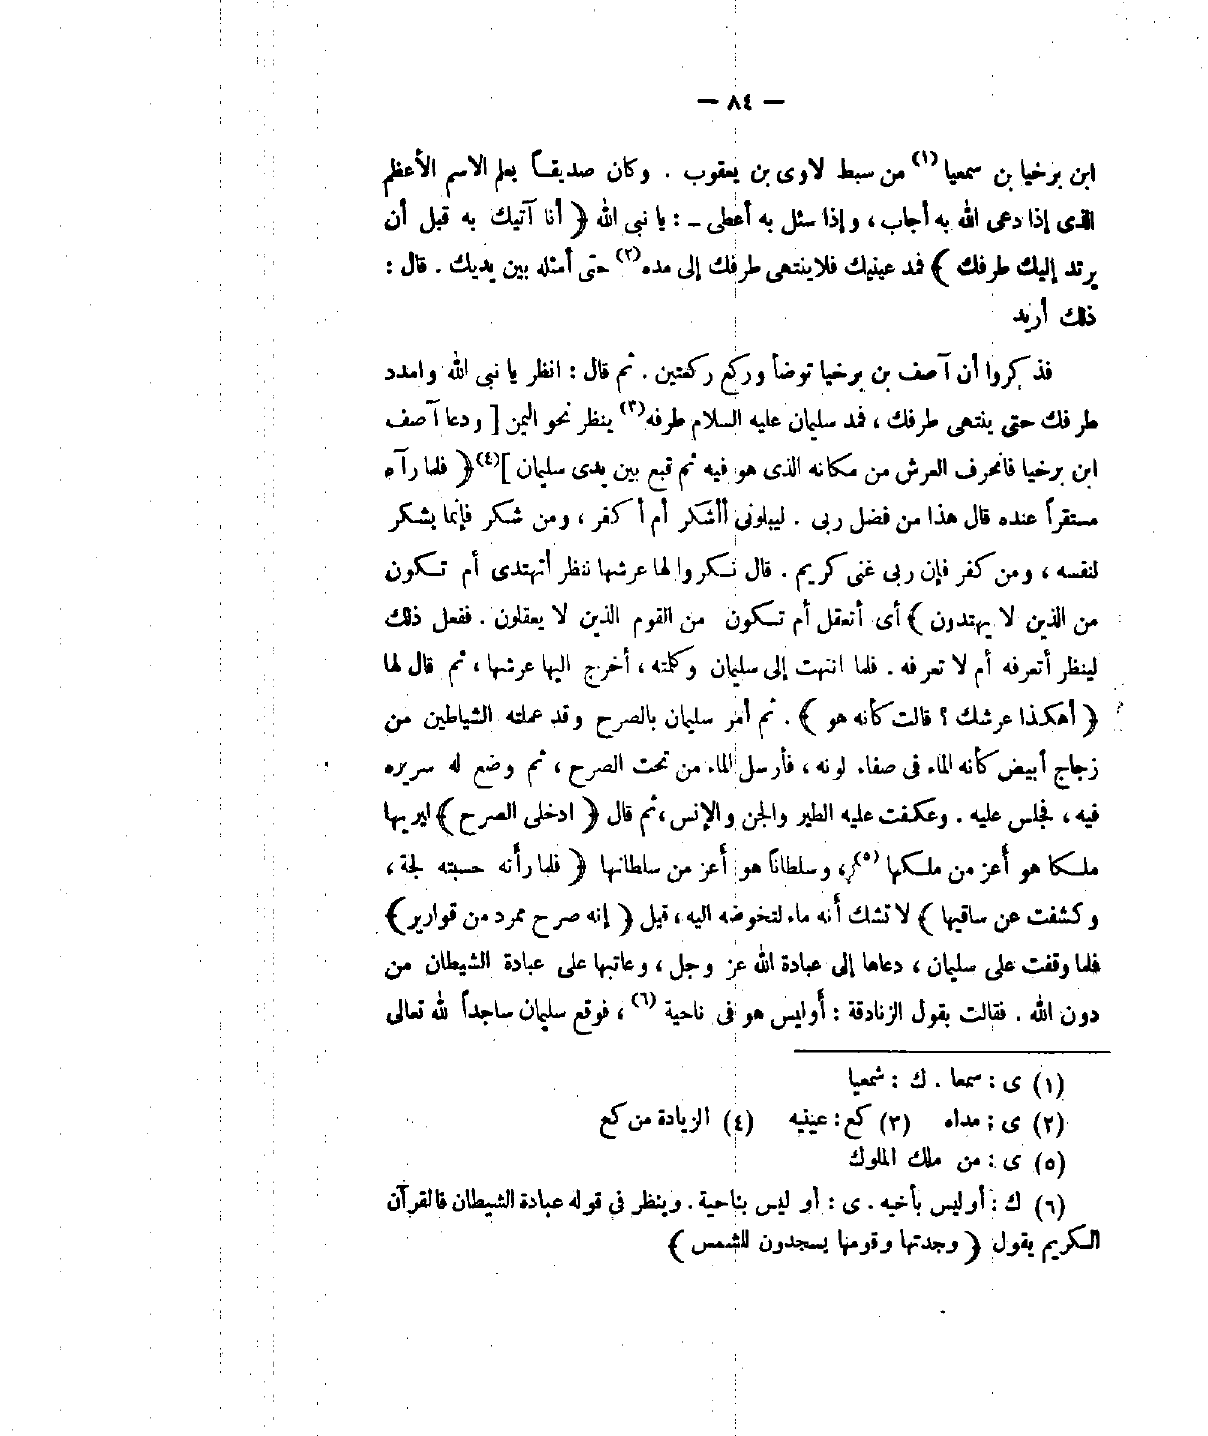 — ٨٤ —
ابن برخيا بن سمعيا (١) من سبط لاوى بن يعقوب . وكان صديقاً يعلم الاسم الأعظم
الذى إذا دعى الله به أجاب ، وإذا سئل به أعطى ـ : يا نبى الله ﴿ أنا آتيك به قبل أن
يرتد إليك طرفك ﴾ فمد عينيك فلا ينتهى طرفك إلى مده (٢) حتى أمثله بين يديك . قال :
ذلك أريد
فذكروا أن آصف بن برخيا توضأ وركع ركعتين . ثم قال : انظر يا نبى الله وامدد
طرفك حتى ينتهى طرفك ، فمد سليمان عليه السلام طرفه (٣) ينظر نحو اليمن [ ودعا آصف
ابن برخيا فانحرف العرش من مكانه الذى هو فيه ثم قبع بين يدى سليمان ] (٤) ﴿ فلما رآه
مستقراً عنده قال هذا من فضل ربى . ليبلونى أأشكر أم أكفر ، ومن شكر فإنما يشكر
لنفسه ، ومن كفر فإن ربى غنى كريم . قال نكروا لها عرشها ننظر أتهتدى أم تكون
من الذين لا يهتدون ﴾ أى أتعقل أم تكون من القوم الذين لا يعقلون . ففعل ذلك
لينظر أتعرفه أم لا تعرفه . فلما انتهت إلى سليمان وكلمته ، أخرج اليها عرشها ، ثم قال لها
﴿ أهكذا عرشك ؟ قالت كأنه هو ﴾ . ثم أمر سليمان بالصرح وقد عملته الشياطين من
زجاج أبيض كأنه الماء فى صفاء لونه ، فأرسل الماء من تحت الصرح ، ثم وضع له سريره
فيه ، فجلس عليه . وعكفت عليه الطير والجن والإنس ، ثم قال ﴿ ادخلى الصرح ﴾ ليريها
ملكا هو أعز من ملكها (٥) ، وسلطاناً هو أعز من سلطانها ﴿ فلما رأته حسبته لجة ،
وكشفت عن ساقيها ﴾ لا تشك أنه ماء لتخوضه اليه ، قيل ﴿ إنه صرح ممرد من قوارير ﴾
فلما وقفت على سليمان ، دعاها إلى عبادة الله عز وجل ، وعاتبها على عبادة الشيطان من
دون الله . فقالت بقول الزنادقة : أوليس هو فى ناحية (٦) ، فوقع سليمان ساجداً لله تعالى
(١) ى : سمعا . ك : شمعيا
(٢) ى : مداه (٣) كع : عينيه (٤) الزيادة من كع
(٥) ى : من ملك الملوك
(٦) ك : أو ليس بأخيه . ى : أو ليس بناحية . وينظر فى قوله عبادة الشيطان فالقرآن
الكريم يقول ﴿ وجدتها وقومها يسجدون للشمس ﴾